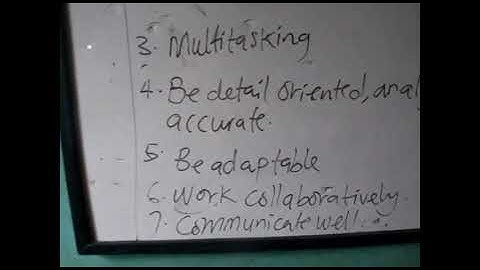 3. Multitasking
4. Be detail oriented,
accurate.
5. Be adaptable
6. Work collaboratively.
7. Communicate well...